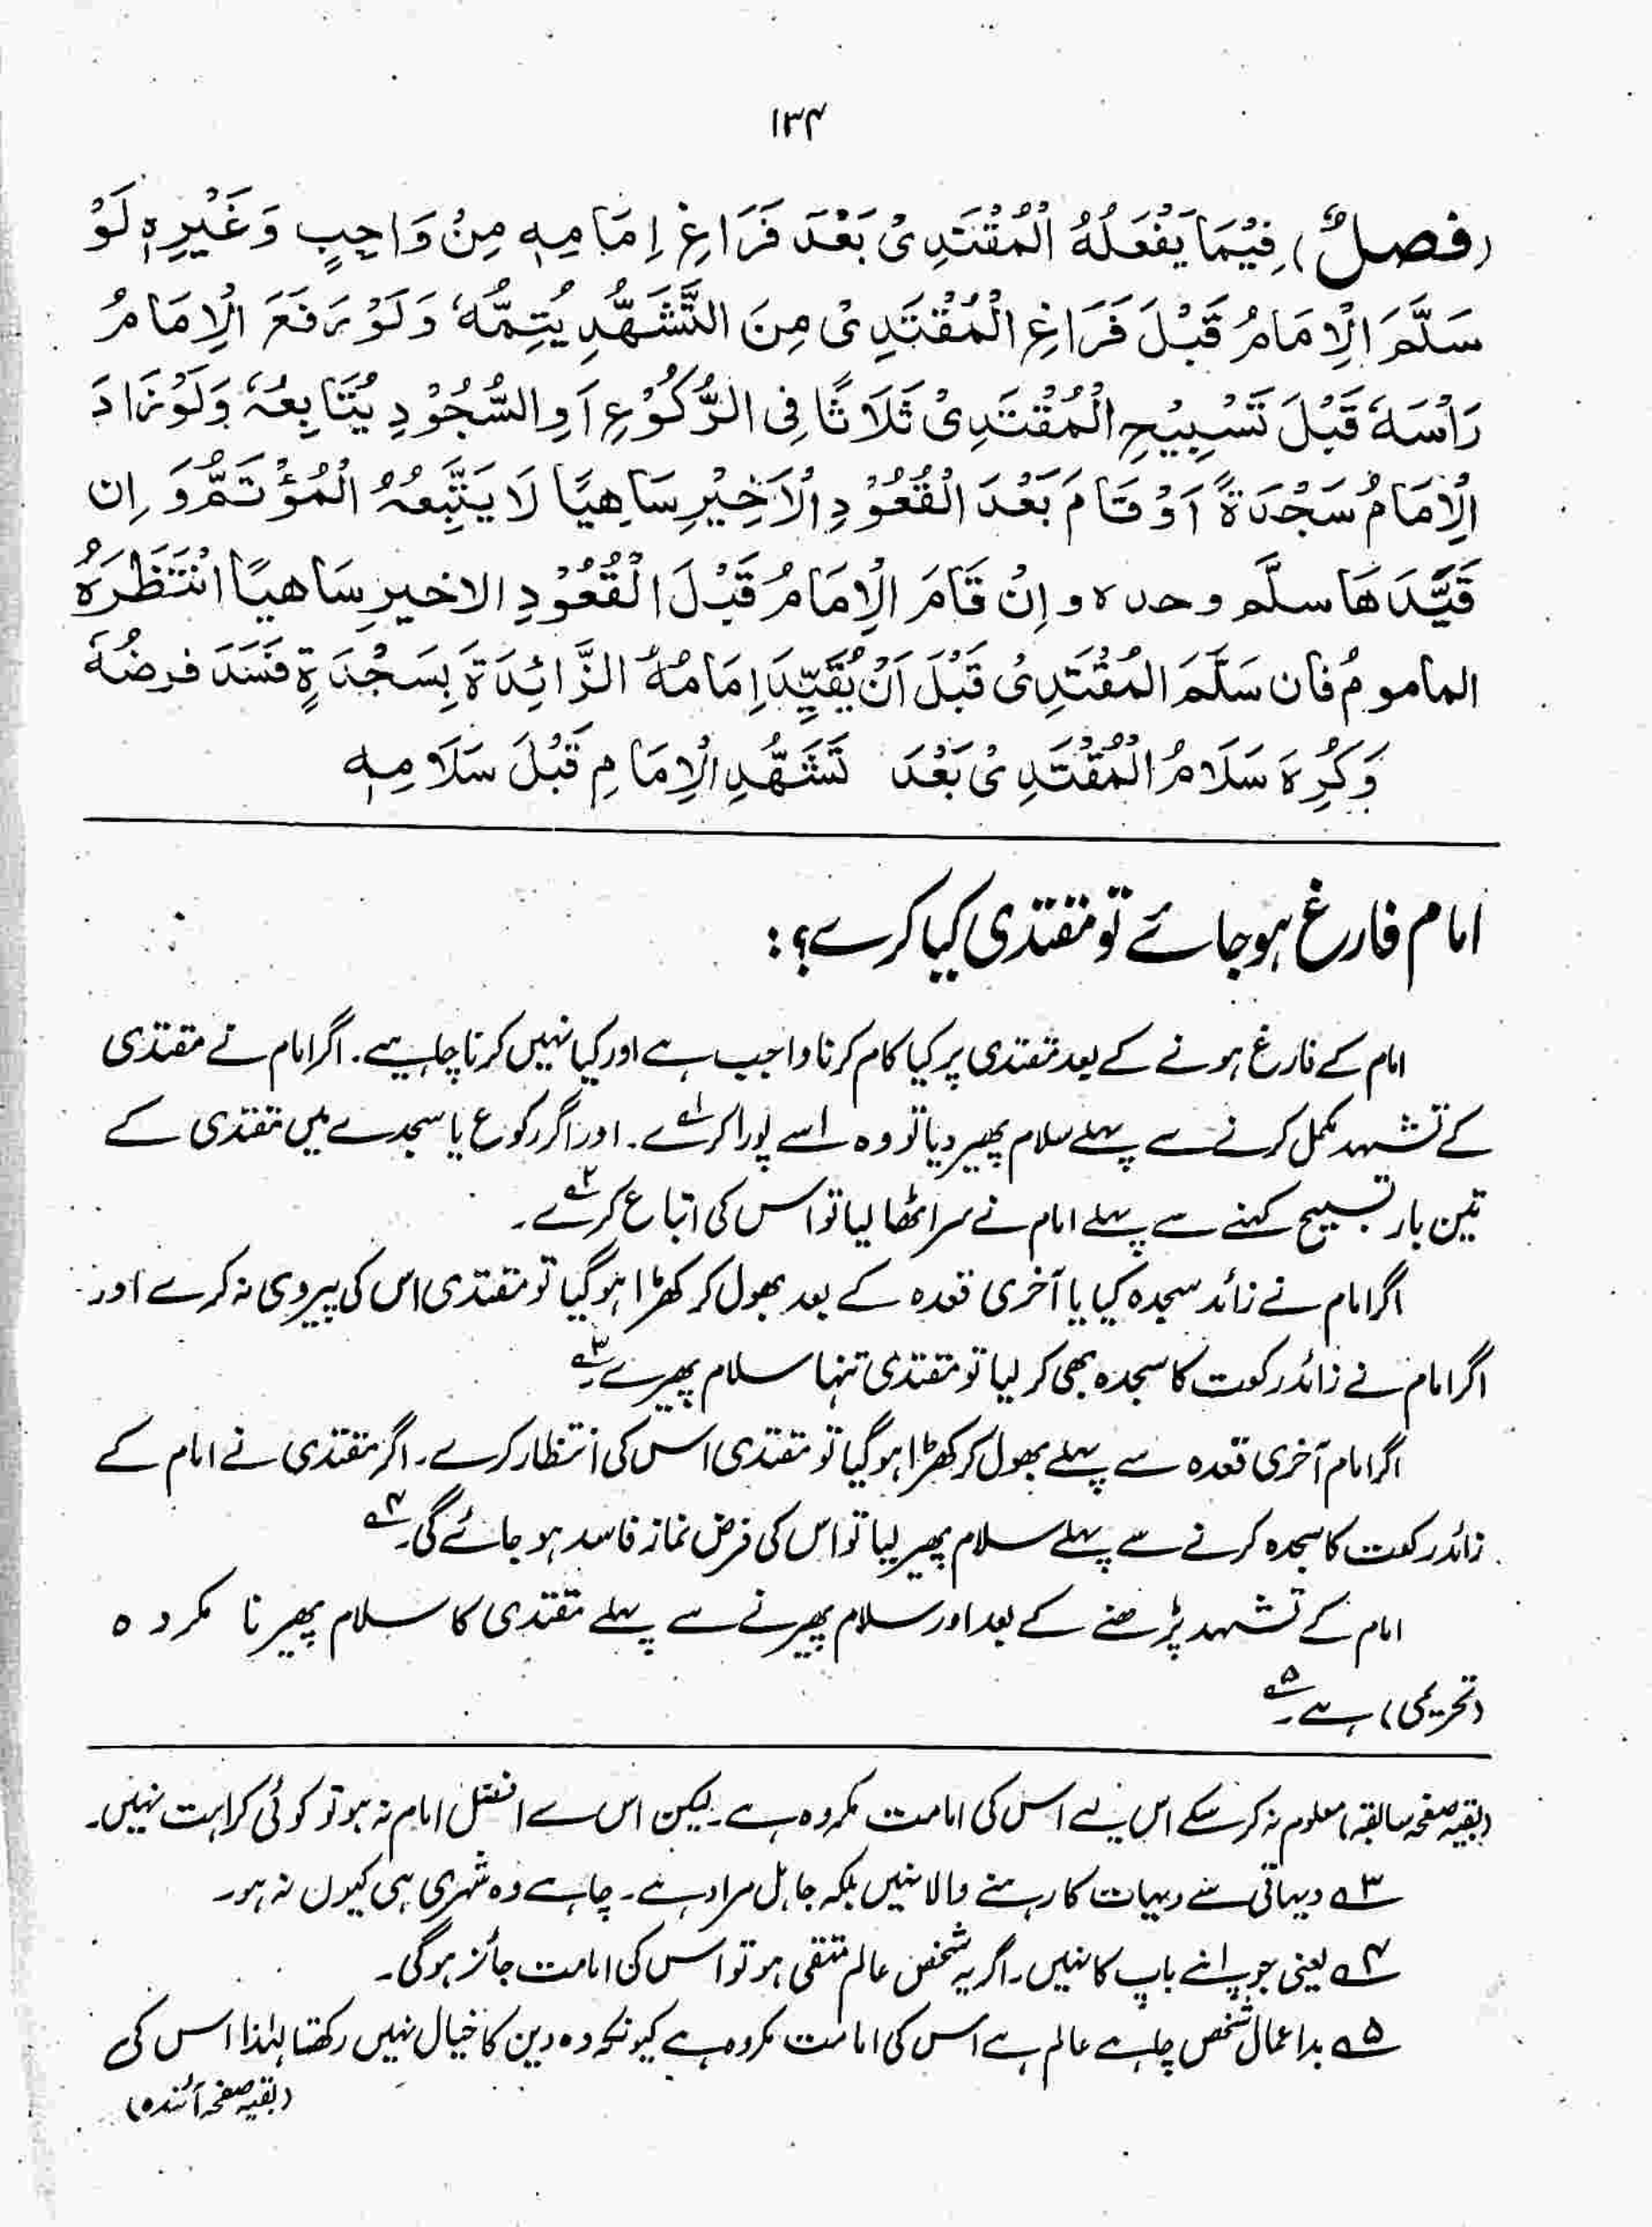 ۱۳۴
(فصلٌ) فِيْمَا يَفْعَلُهُ الْمُقْتَدِىْ بَعْدَ فَرَاغِ اِمَامِهٖ مِنْ وَاجِبٍ وَغَيْرِهٖ لَوْ
سَلَّمَ الْاِمَامُ قَبْلَ فَرَاغِ الْمُقْتَدِىْ مِنَ التَّشَهُّدِ يُتِمُّهٗ وَلَوْ رَفَعَ الْاِمَامُ
رَاْسَهٗ قَبْلَ تَسْبِيْحِ الْمُقْتَدِىْ ثَلَاثًا فِى الرُّكُوْعِ اَوِ السُّجُوْدِ يُتَابِعُهٗ وَلَوْ زَادَ
الْاِمَامُ سَجْدَةً اَوْ قَامَ بَعْدَ الْقُعُوْدِ الْاَخِيْرِ سَاهِيًا لَا يَتَّبِعُهُ الْمُؤْتَمُّ وَاِن
قَيَّدَهَا سلَّم وحده و اِنْ قَامَ الْاِمَامُ قَبْلَ الْقُعُوْدِ الاخيرِ سَاهيًا انْتَظَرَهُ
الماموم ُ فان سَلَّمَ المُقْتَدِىْ قَبْلَ اَنْ يُقَيِّدَ اِمَامُهُ الزَّائِدَةَ بِسَجْدَةٍ فَسَدَ فرضُهٗ
وَكُرِهَ سَلَامُ الْمُقْتَدِىْ بَعْدَ تَشَهُّدِ الْاِمَامِ قَبْلَ سَلَامِهٖ
امام فارغ ہوجائے تو مقتدی کیا کرے؟:
امام کے فارغ ہونے کے بعد مقتدی پر کیا کام کرنا واجب ہے اور کیا نہیں کرنا چاہیے۔ اگر امام نے مقتدی
کے تشہد مکمل کرنے سے پہلے سلام پھیر دیا تو وہ اسے پورا کرے۱؎۔ اور اگر رکوع یا سجدے میں مقتدی کے
تین بار تسبیح کہنے سے پہلے امام نے سر اٹھا لیا تو اس کی اتباع کرے۲؎۔
اگر امام نے زائد سجدہ کیا یا آخری قعدہ کے بعد بھول کر کھڑا ہوگیا تو مقتدی اس کی پیروی نہ کرے اور
اگر امام نے زائد رکعت کا سجدہ بھی کر لیا تو مقتدی تنہا سلام پھیرے۳؎۔
اگر امام آخری قعدہ سے پہلے بھول کر کھڑا ہوگیا تو مقتدی اس کی انتظار کرے۔ اگر مقتدی نے امام کے
زائد رکعت کا سجدہ کرنے سے پہلے سلام پھیر لیا تو اس کی فرض نماز فاسد ہو جائے گی۴؎۔
امام کے تشہد پڑھنے کے بعد اور سلام پھیرنے سے پہلے مقتدی کا سلام پھیرنا مکروہ
(تحریمی) ہے۵؎۔
(بقیہ صفحہ سابقہ) معلوم نہ کرسکے اس لیے اس کی امامت مکروہ ہے۔ لیکن اس سے افضل امام نہ ہو تو کوئی کراہت نہیں۔
۳؎ دیہاتی سے دیہات کا رہنے والا نہیں بلکہ جاہل مراد ہے۔ چاہے وہ شہری ہی کیوں نہ ہو۔
۴؎ یعنی جو اپنے باپ کا نہیں۔ اگر یہ شخص عالم متقی ہو تو اس کی امامت جائز ہوگی۔
۵؎ بداعمال شخص چاہے عالم ہے اس کی امامت مکروہ ہے کیونکہ وہ دین کا خیال نہیں رکھتا لہٰذا اس کی
(بقیہ صفحہ آئندہ)